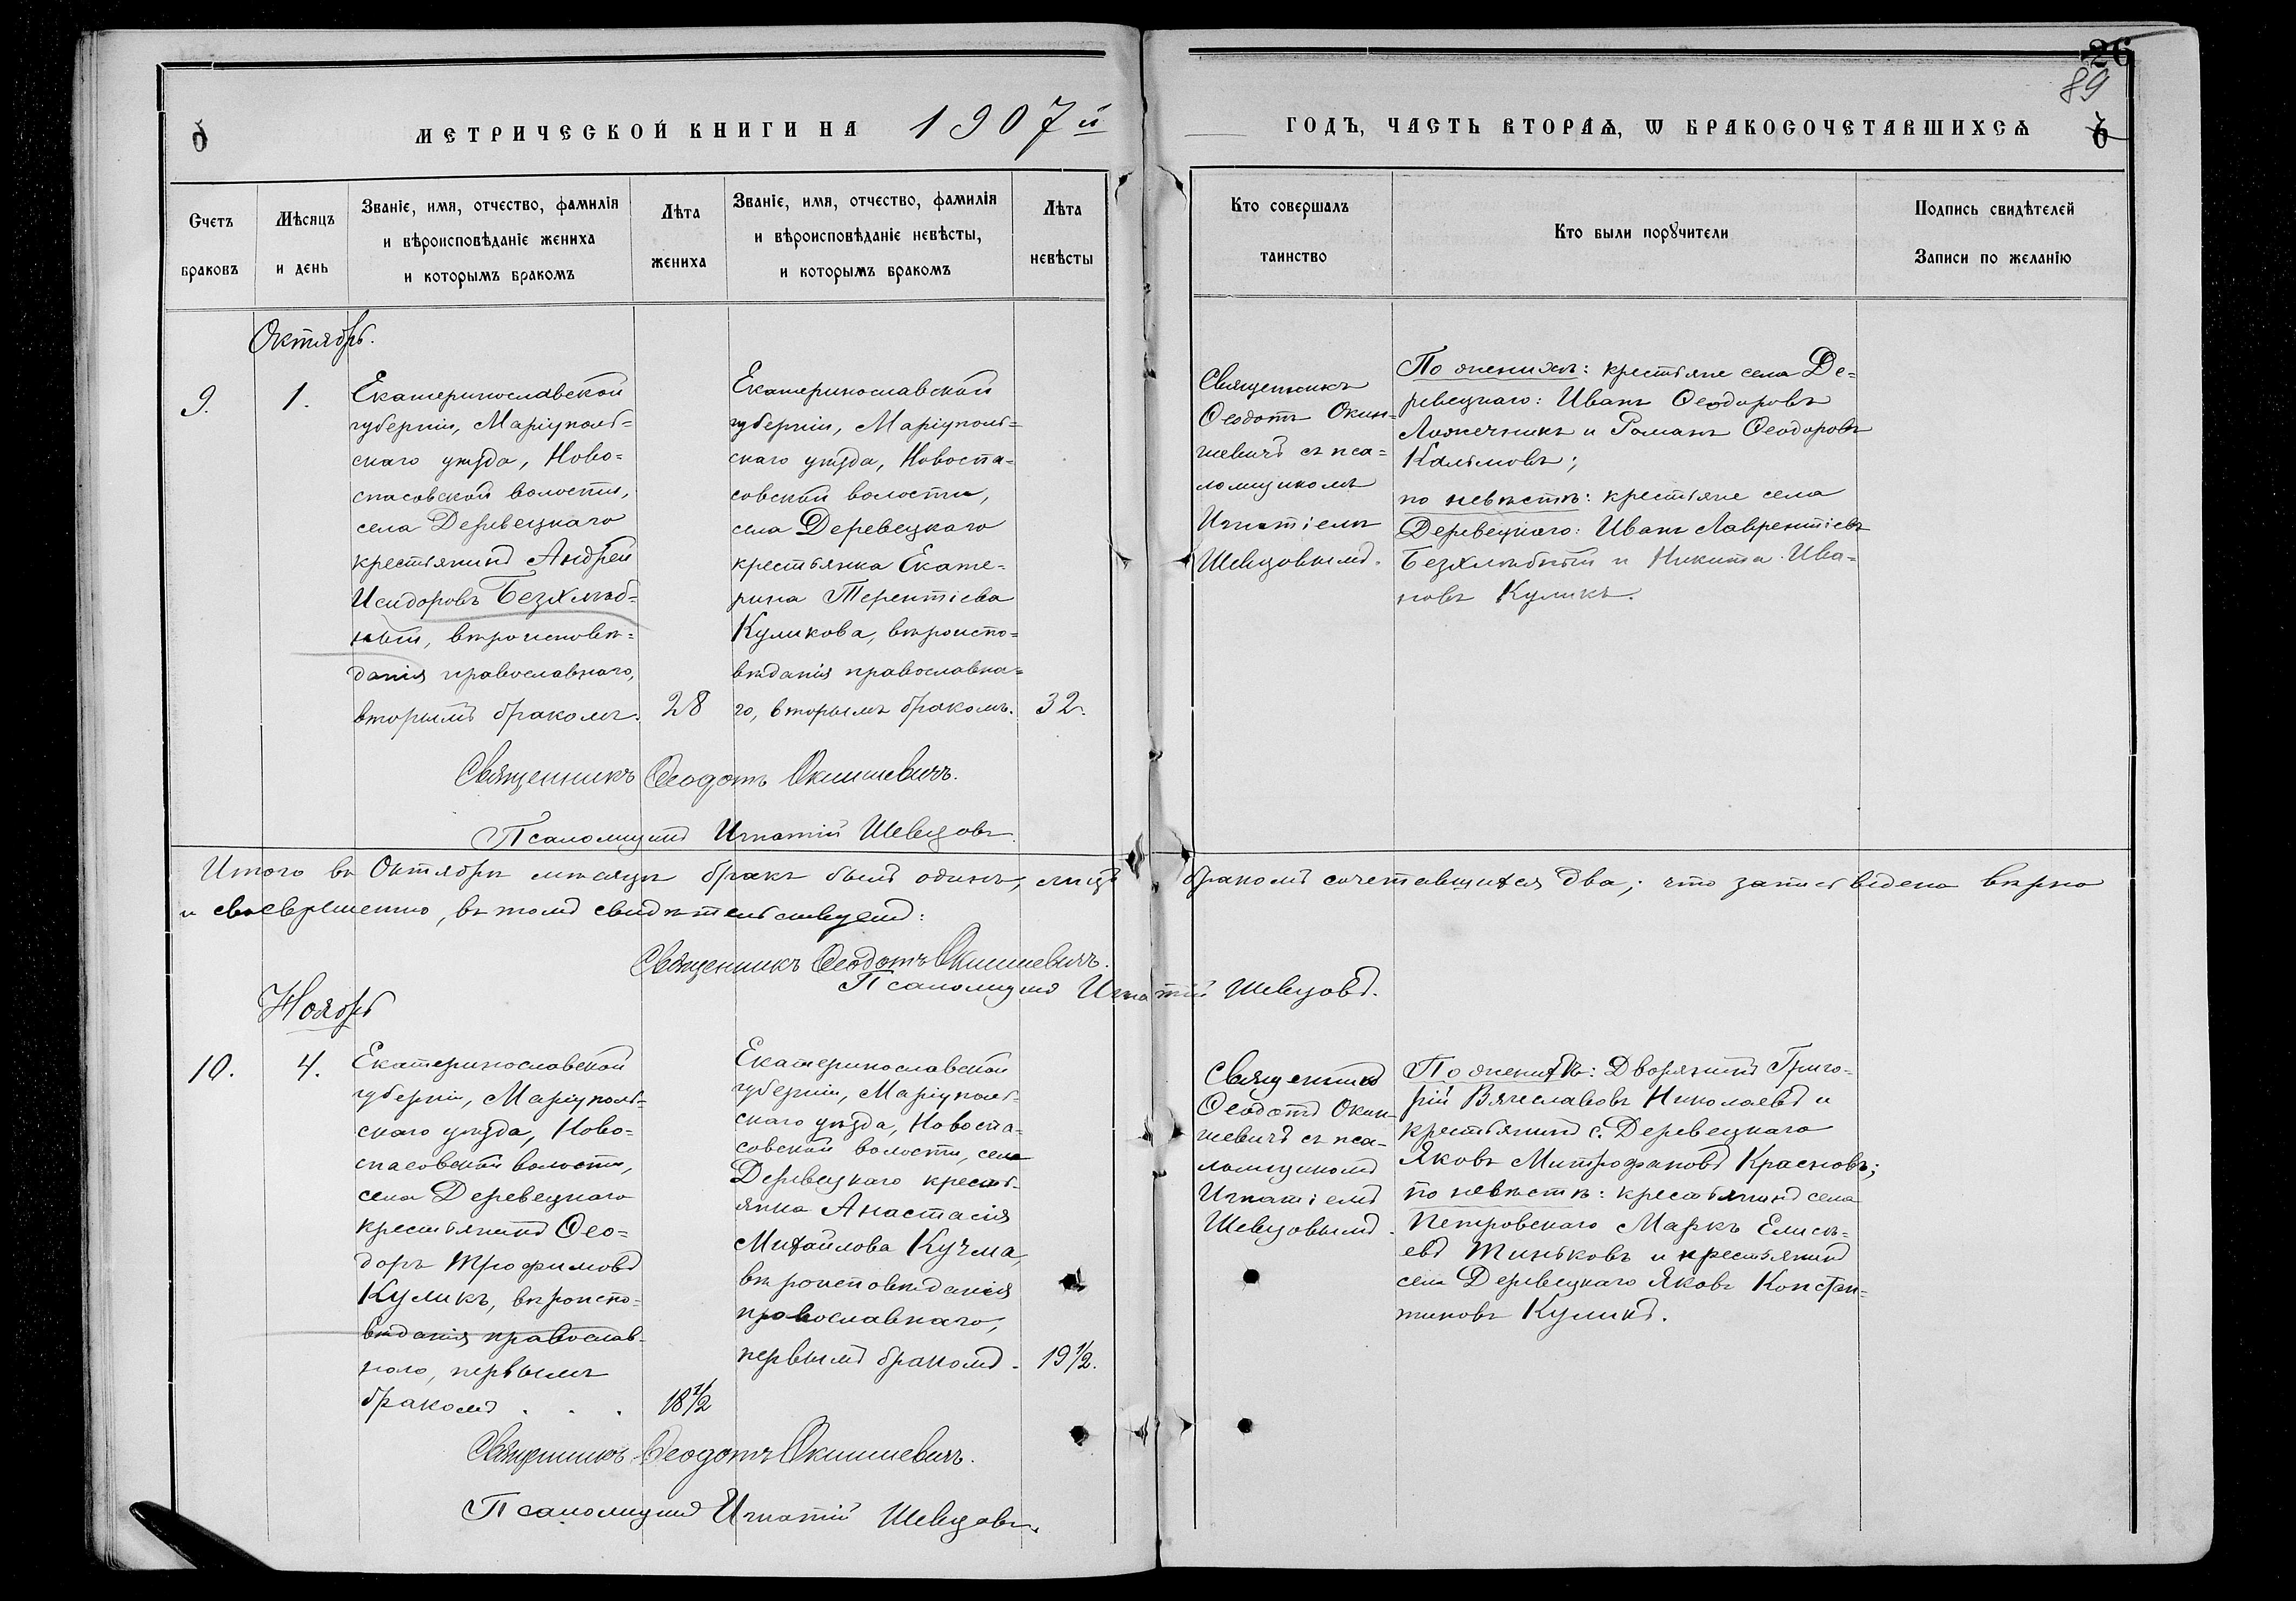 26
89
МЕТРИЧЕСКОЙ КНИГИ НА 1907й
ГОДЪ, ЧАСТЬ ВТОРАѦ, Ѡ БРАКОСОЧЕТАВШИХСѦ
Счетъ
браковъ
Мѣсяцъ
и день
Званіе, имя, отчество, фамилія
и вѣроисповѣданіе жениха
и которымъ бракомъ
Лѣта
жениха
Званіе, имя, отчество, фамилія
и вѣроисповѣданіе невѣсты,
и которымъ бракомъ
Лѣта
невѣсты
Кто совершалъ
таинство
Кто были порꙋчители
Подпись свидѣтелей
Записи по желанію
Октябрь.
9.
1.
Екатеринославской
губерніи, Маріуполь=
скаго уѣзда, Ново=
спасовской волости,
села Деревецкаго
крестьянинъ Андрей
Исидоровъ Безхлѣб=
ный, вѣроисповѣ=
данія православнаго,
вторымъ бракомъ.
28
Екатеринославской
губерніи, Маріуполь=
скаго уѣзда, Новоспа=
совской волости,
села Деревецкаго
крестьянка Екате=
рина Терентіева
Куликова, вѣроиспо=
вѣданія православна=
го, вторымъ бракомъ.
32.
Священникъ
Ѳеодотъ Окин=
шевичъ съ пса=
ломщикомъ
Игнатіемъ
Шевцовымъ.
По женихѣ: крестьяне села Де=
ревецкаго: Иванъ Ѳеодоровъ
Ложечникъ и Романъ Ѳеодоровъ
Калѣмовъ;
по невѣстѣ: крестьяне села
Деревецкаго: Иванъ Лаврентіевъ
Безхлѣбный и Никита Ива=
новъ Куликъ.
Священникъ Ѳеодотъ Окиншевичъ.
Псаломщикъ Игнатій Шевцовъ.
Итого въ Октябрѣ мѣсяцѣ бракъ былъ одинъ, лицъ бракомъ сочетавшихся два; что запись ведена вѣрно
и своевременно, въ томъ свидѣтельствуемъ:
Священникъ Ѳеодотъ Окиншевичъ.
Псаломщикъ Игнатій Шевцовъ.
Ноябрь
10.
4.
Екатеринославской
губерніи, Маріуполь=
скаго уѣзда, Ново=
спасовской волости,
села Деревецкаго
крестьянинъ Ѳео=
доръ Трофимовъ
Куликъ, вѣроиспо=
вѣданія православ-
наго, первымъ
бракомъ . . .
18 1/2
Екатеринославской
губерніи, Маріуполь=
скаго уѣзда, Новоспа=
совской волости, села
Деревецкаго кресть-
янка Анастасія
Михайлова Кучма,
вѣроисповѣданія
православнаго,
первымъ бракомъ.
19 1/2.
Священникъ
Ѳеодотъ Окин-
шевичъ съ пса-
ломщикомъ
Игнатіемъ
Шевцовымъ.
По женихѣ: Дворянинъ Григо-
рій Вячеславовъ Николаевъ и
крестьянинъ с. Деревецкаго
Яковъ Митрофановъ Красновъ;
по невѣстѣ: крестьянинъ села
Петровскаго Маркъ Елисѣ-
евъ Тиньковъ и крестьянинъ
села Деревецкаго Яковъ Констан=
тиновъ Куликъ.
Священникъ Ѳеодотъ Окиншевичъ.
Псаломщикъ Игнатій Шевцовъ.